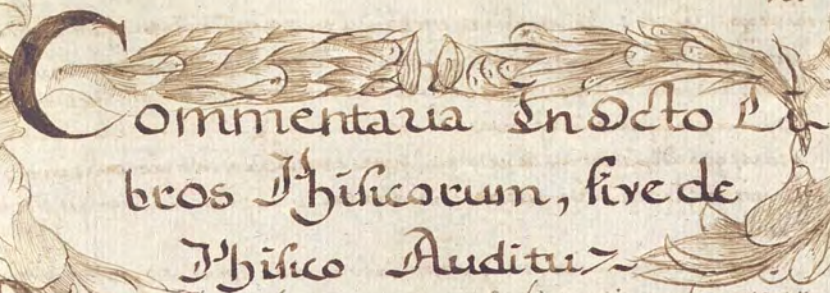 Commentaria In Octo Li
bros Phisicorum, sive de
Phisico Auditu